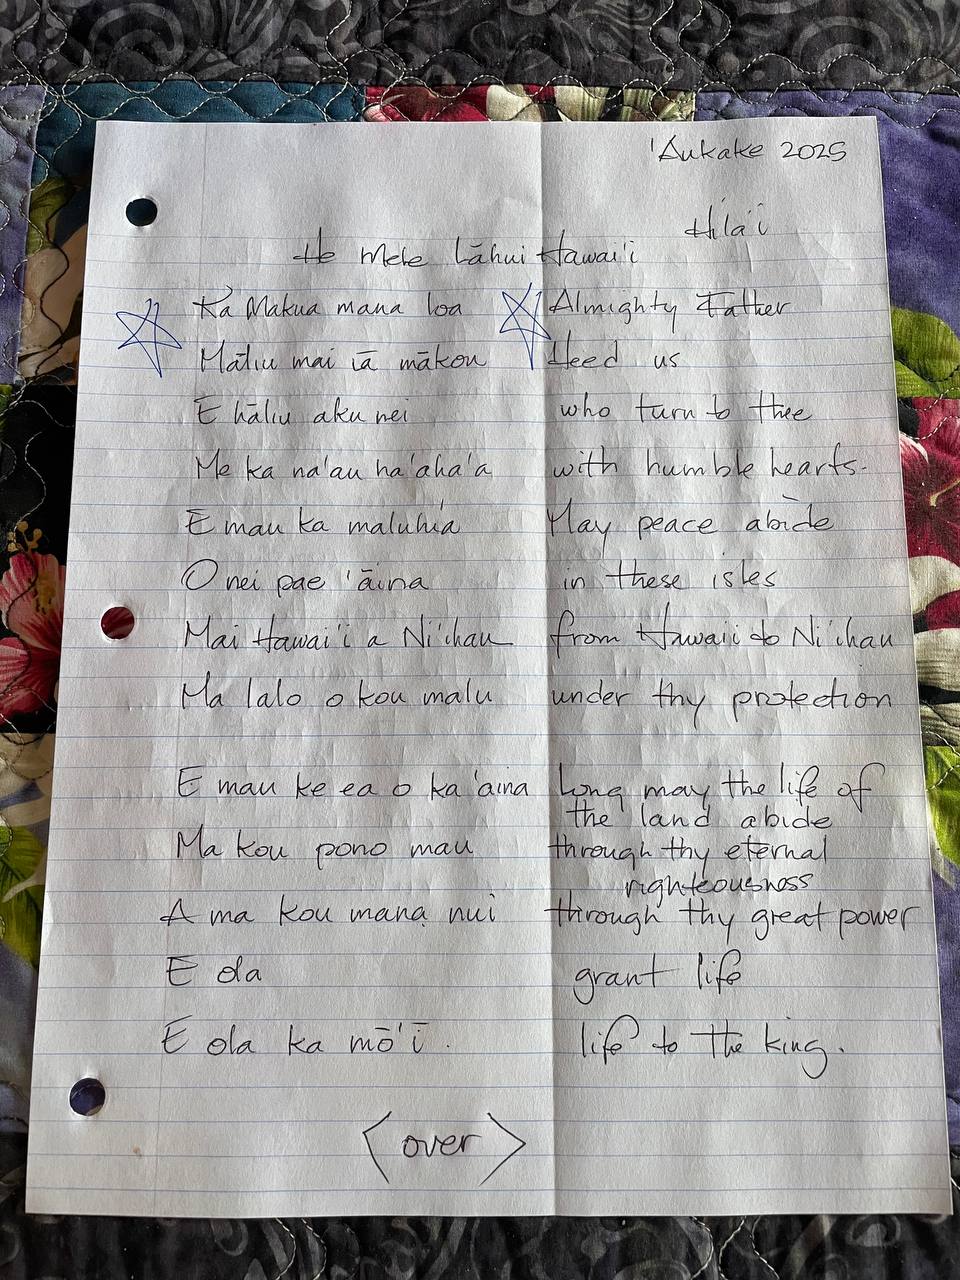 'Aukake 2025
Hila'i
He Mele Lāhui Hawai'i
Ka Makua mana loa
Māliu mai iā mākou
E hāliu aku nei
Me ka na'au ha'aha'a
E mau ka maluhia
O nei pae 'āina
Mai Hawai'i a Ni'ihau
Ma lalo o kou malu
E mau ke ea o ka 'aina
Ma kou pono mau
A ma kou mana nui
E ola
E ola ka mō'ī.
Almighty Father
Heed us
who turn to thee
with humble hearts.
May peace abide
in these isles
from Hawaii to Ni'ihau
under thy protection
Long may the life of
the land abide
through thy eternal
righteousness
through thy great power
grant life
life to the king.
<over>